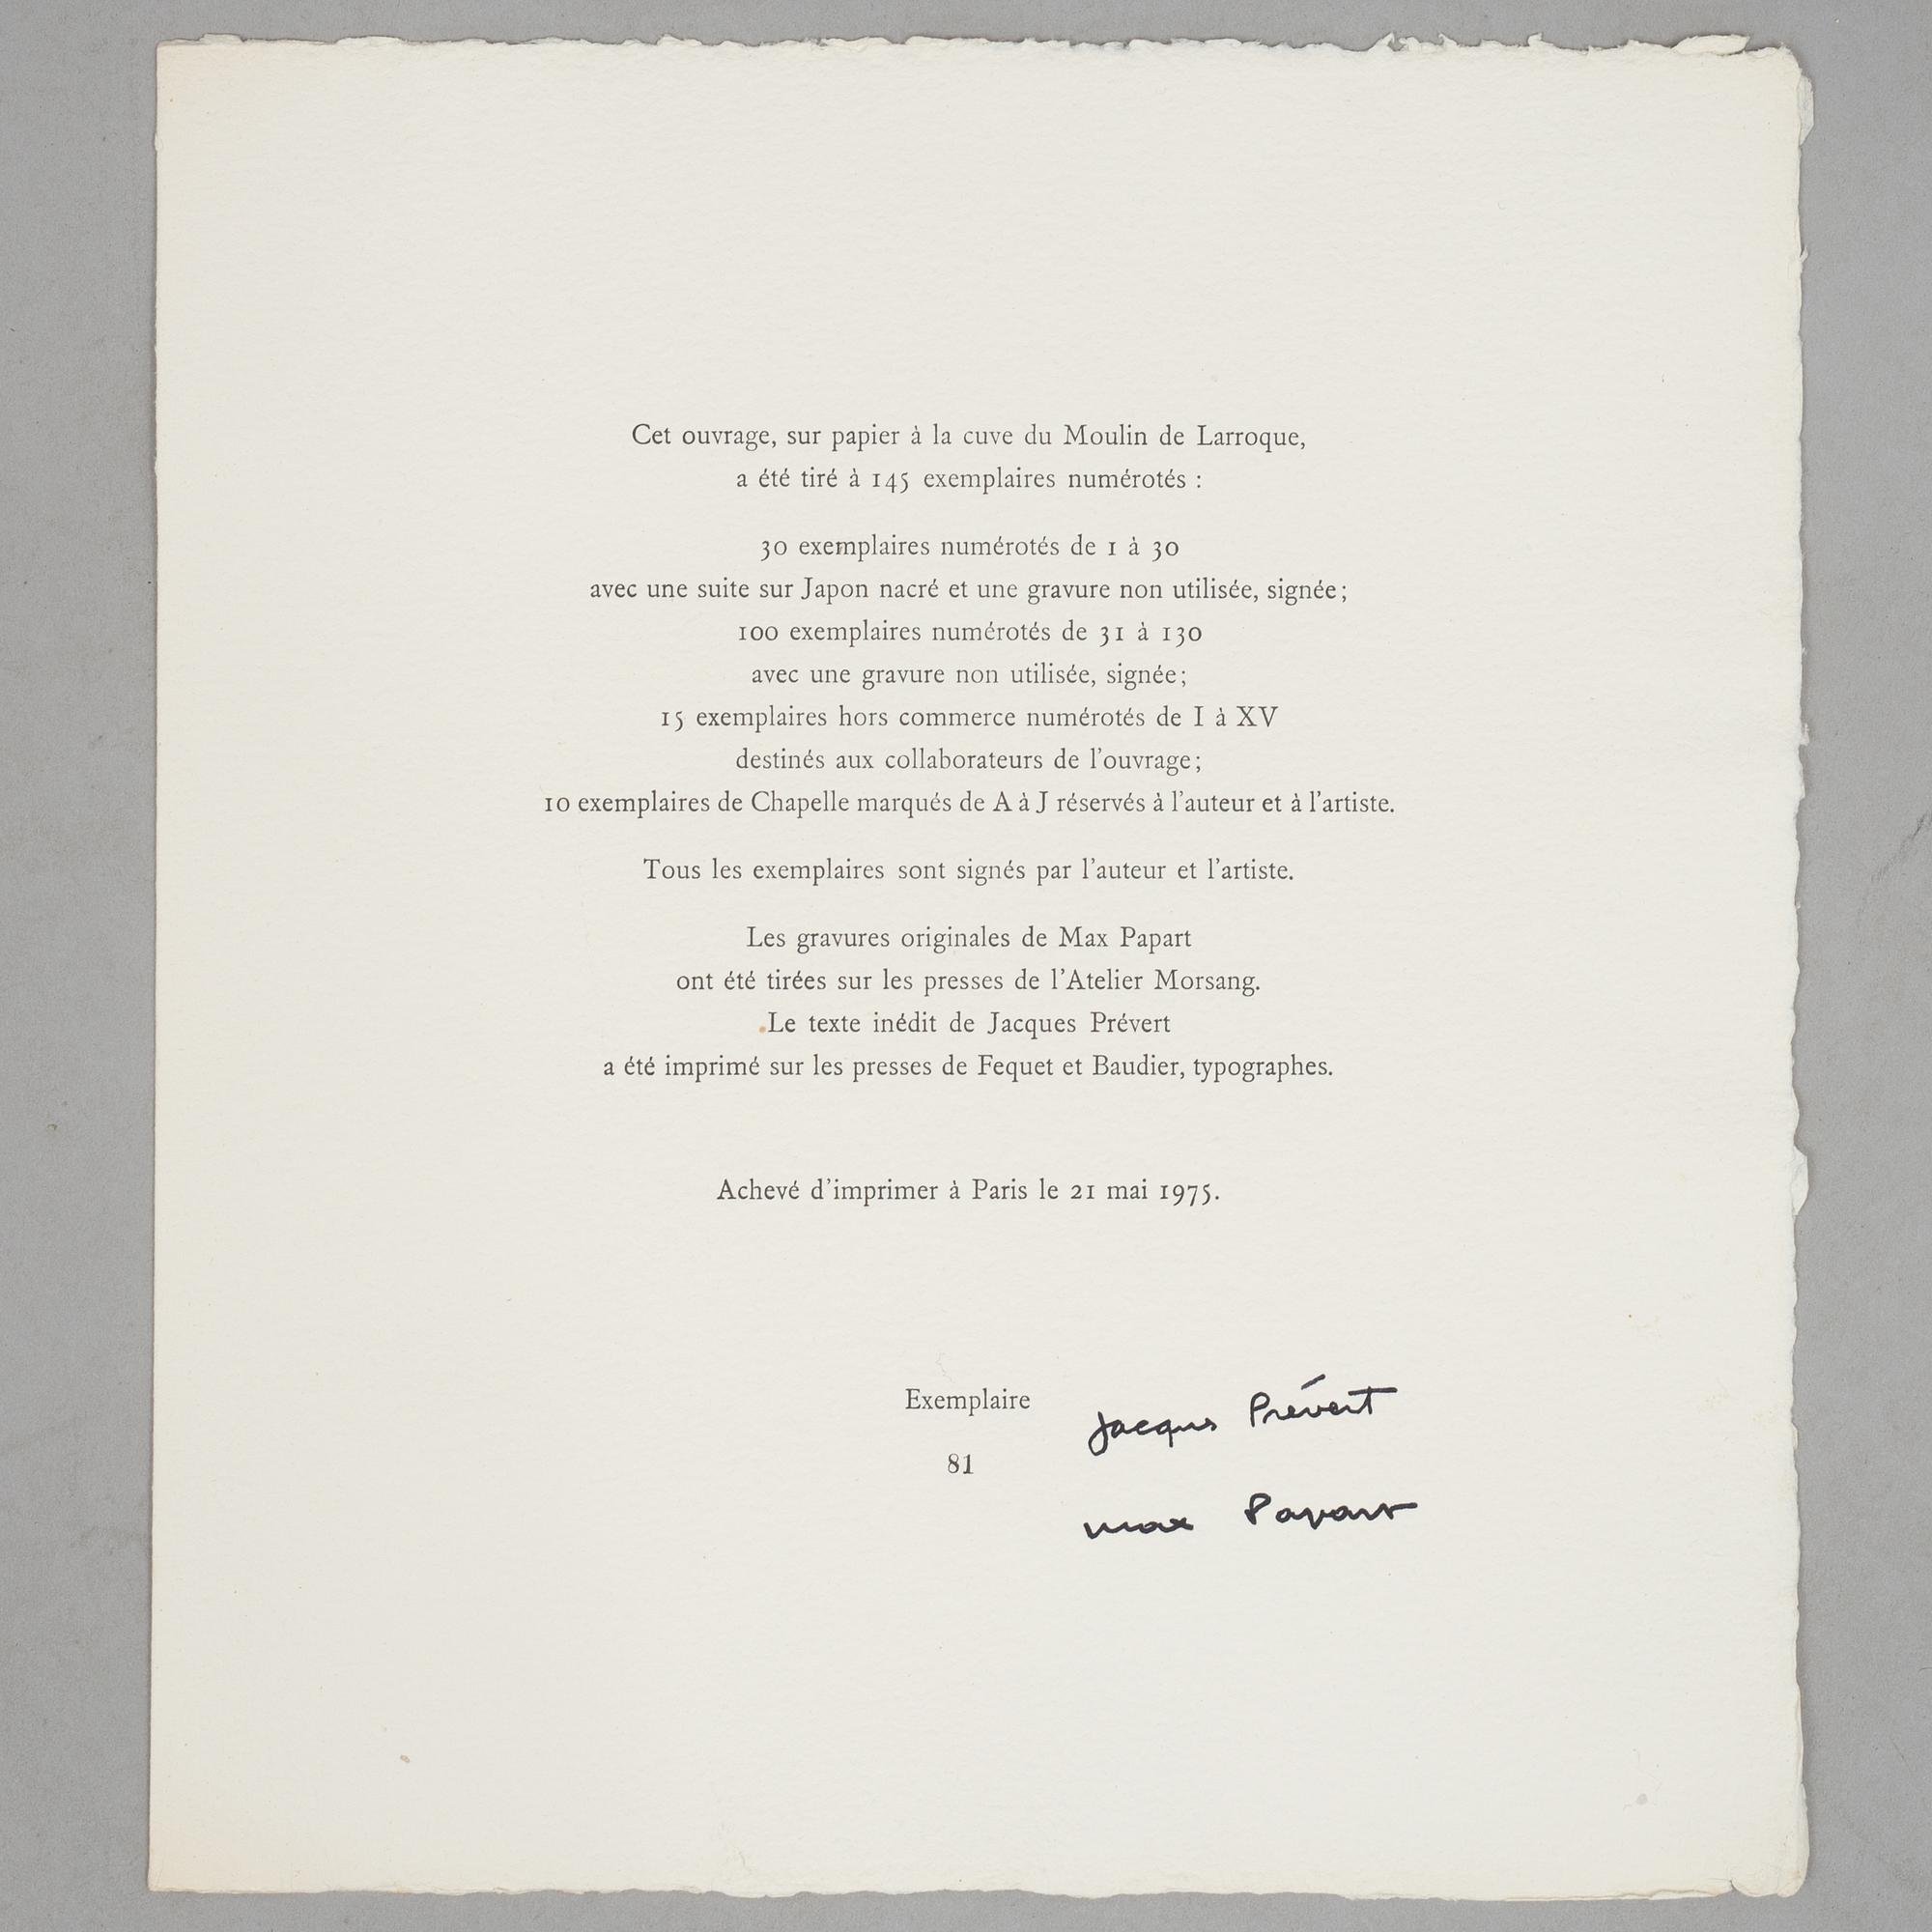 Cet ouvrage, sur papier à la cuve du Moulin de Larroque,
a été tiré à 145 exemplaires numérotés :
30 exemplaires numérotés de 1 à 30
avec une suite sur Japon nacré et une gravure non utilisée, signée;
100 exemplaires numérotés de 31 à 130
avec une gravure non utilisée, signée;
15 exemplaires hors commerce numérotés de I à XV
destinés aux collaborateurs de l'ouvrage;
10 exemplaires de Chapelle marqués de A à J réservés à l'auteur et à l'artiste.
Tous les exemplaires sont signés par l'auteur et l'artiste.
Les gravures originales de Max Papart
ont été tirées sur les presses de l'Atelier Morsang.
Le texte inédit de Jacques Prévert
a été imprimé sur les presses de Fequet et Baudier, typographes.
Achevé d'imprimer à Paris le 21 mai 1975.
Exemplaire
81
Jacques Prévert
Max Papart